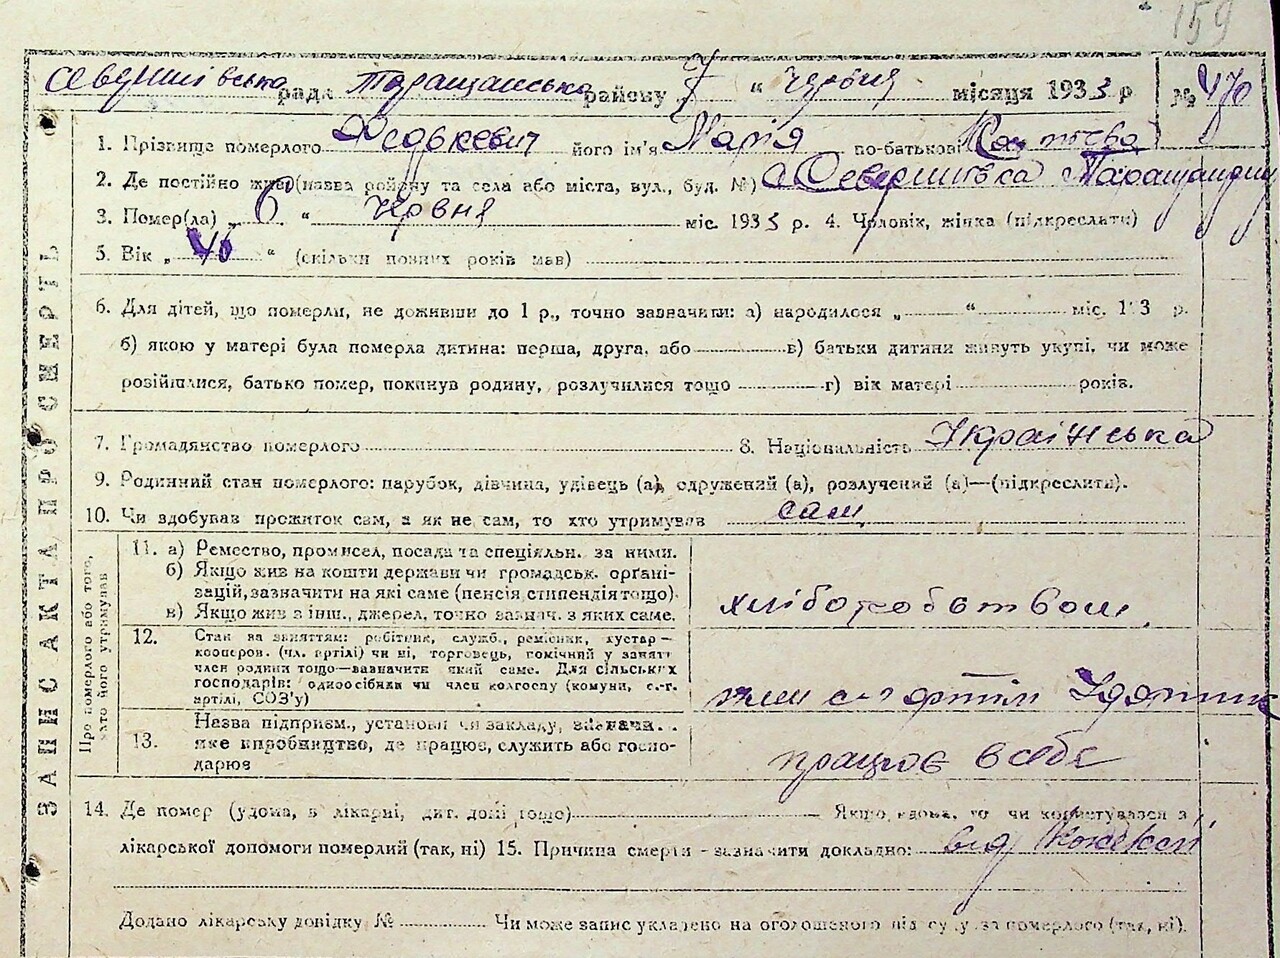 159
Северинівська рада Таращанська району 7 „ червня місяця 1933 р № 470
1. Прізвище померлого Федькевич його ім'я Марія по-батькові
2. Де постійно жив (назва району та села або міста, вул., буд. №) с Северинівка
3. Помер(ла) „ 6 “ червня міс. 1933 р. 4. Чоловік, жінка (підкреслати)
5. Вік „ 40 “ (скільки повних років мав)
6. Для дітей, що померли, не доживши до 1 р., точно зазначити: а) народилося „ “ міс. 193 р.
б) якою у матері була померла дитина: перша, друга, або в) батьки дитини живуть укупі, чи може
розійшлися, батько помер, покинув родину, розлучилися тощо г) вік матері років.
7. Громадянство померлого 8. Національність Українська
9. Родинний стан померлого: парубок, дівчина, удівець (а), одружений (а), розлучений (а)—(підкреслити).
10. Чи здобував прожиток сам, а як не сам, то хто утримував сам
ЗАПИС АКТА ПРО СМЕРТЬ
Про померлого або того, хто його утримував
11. а) Ремество, промисел, посада та спеціяльн. за ними.
б) Якщо жив на кошти держави чи громадськ. орґані-
зацій, зазначити на які саме (пенсія, стипендія тощо).
в) Якщо жив з інш. джерел, точно зазнач. з яких саме.
хліборобством
12. Стан за заняттям: робітник, служб., ремісник, кустар—
кооперов. (чл. артілі) чи ні, торговець, помічний у занятт
член родини тощо—зазначити який саме. Для сільських
господарів: одноосібний чи член колгоспу (комуни, с.-г.
артілі, СОЗ'у)
член с-г артіл
13. Назва підприєм., установи чи закладу, зазнача.
яке виробництво, де працює, служить або госпо-
дарює
працює в себе
14. Де помер (удома, в лікарні, дит. домі тощо) Якщо вдома, то чи користувався з
лікарської допомоги померлий (так, ні) 15. Причина смерти - зазначити докладно: від
Додано лікарську довідку № Чи може запис укладено на оголошеного під суду за померлого (так, ні).